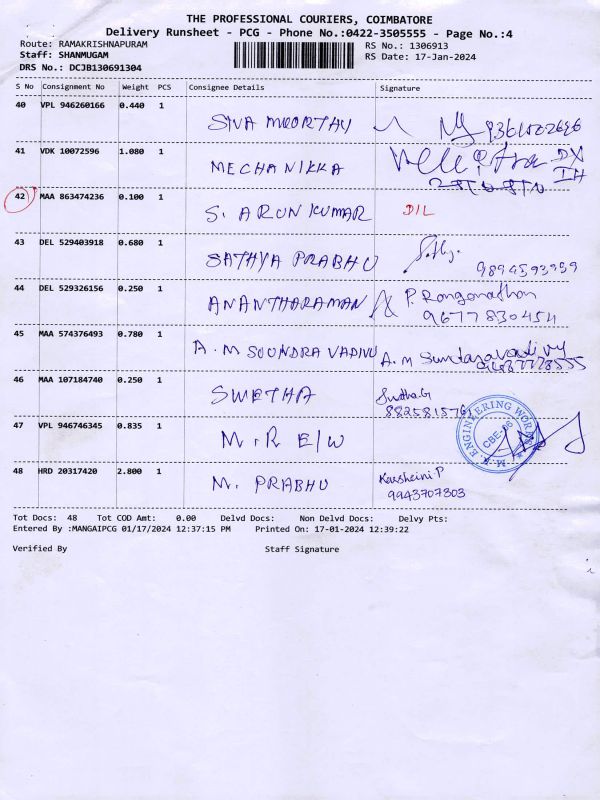 THE PROFESSIONAL COURIERS, COIMBATORE
Delivery Runsheet - PCG - Phone No.:0422-3505555 - Page No.:4
Route: RAMAKRISHNAPURAM RS No.: 1306913
Staff: SHANMUGAM RS Date: 17-Jan-2024
DRS No.: DCJB130691304
S No Consignment No Weight PCS Consignee Details Signature
40 VPL 946260166 0.440 1 SIVA MOORTHY
41 VDK 10072596 1.080 1 MECHANIKKA
42 MAA 863474236 0.100 1 S. ARUN KUMAR DIL
43 DEL 529403918 0.680 1 SATHYA PRABHU 9894593959
44 DEL 529326156 0.250 1 ANANTHARAMAN P. Ranganathan
9677830454
45 MAA 574376493 0.780 1 A.M SOUNDRA VADIVU A.M Sundaravadivu
46 MAA 107184740 0.250 1 SWETHA Sudha.G
8825815761
47 VPL 946746345 0.835 1 M.R E/W
ENGINEERING WORKS
CBE-06
48 HRD 20317420 2.800 1 M. PRABHU Kausheini P
9943707303
Tot Docs: 48 Tot COD Amt: 0.00 Delvd Docs: Non Delvd Docs: Delvy Pts:
Entered By :MANGAIPCG 01/17/2024 12:37:15 PM Printed On: 17-01-2024 12:39:22
Verified By Staff Signature